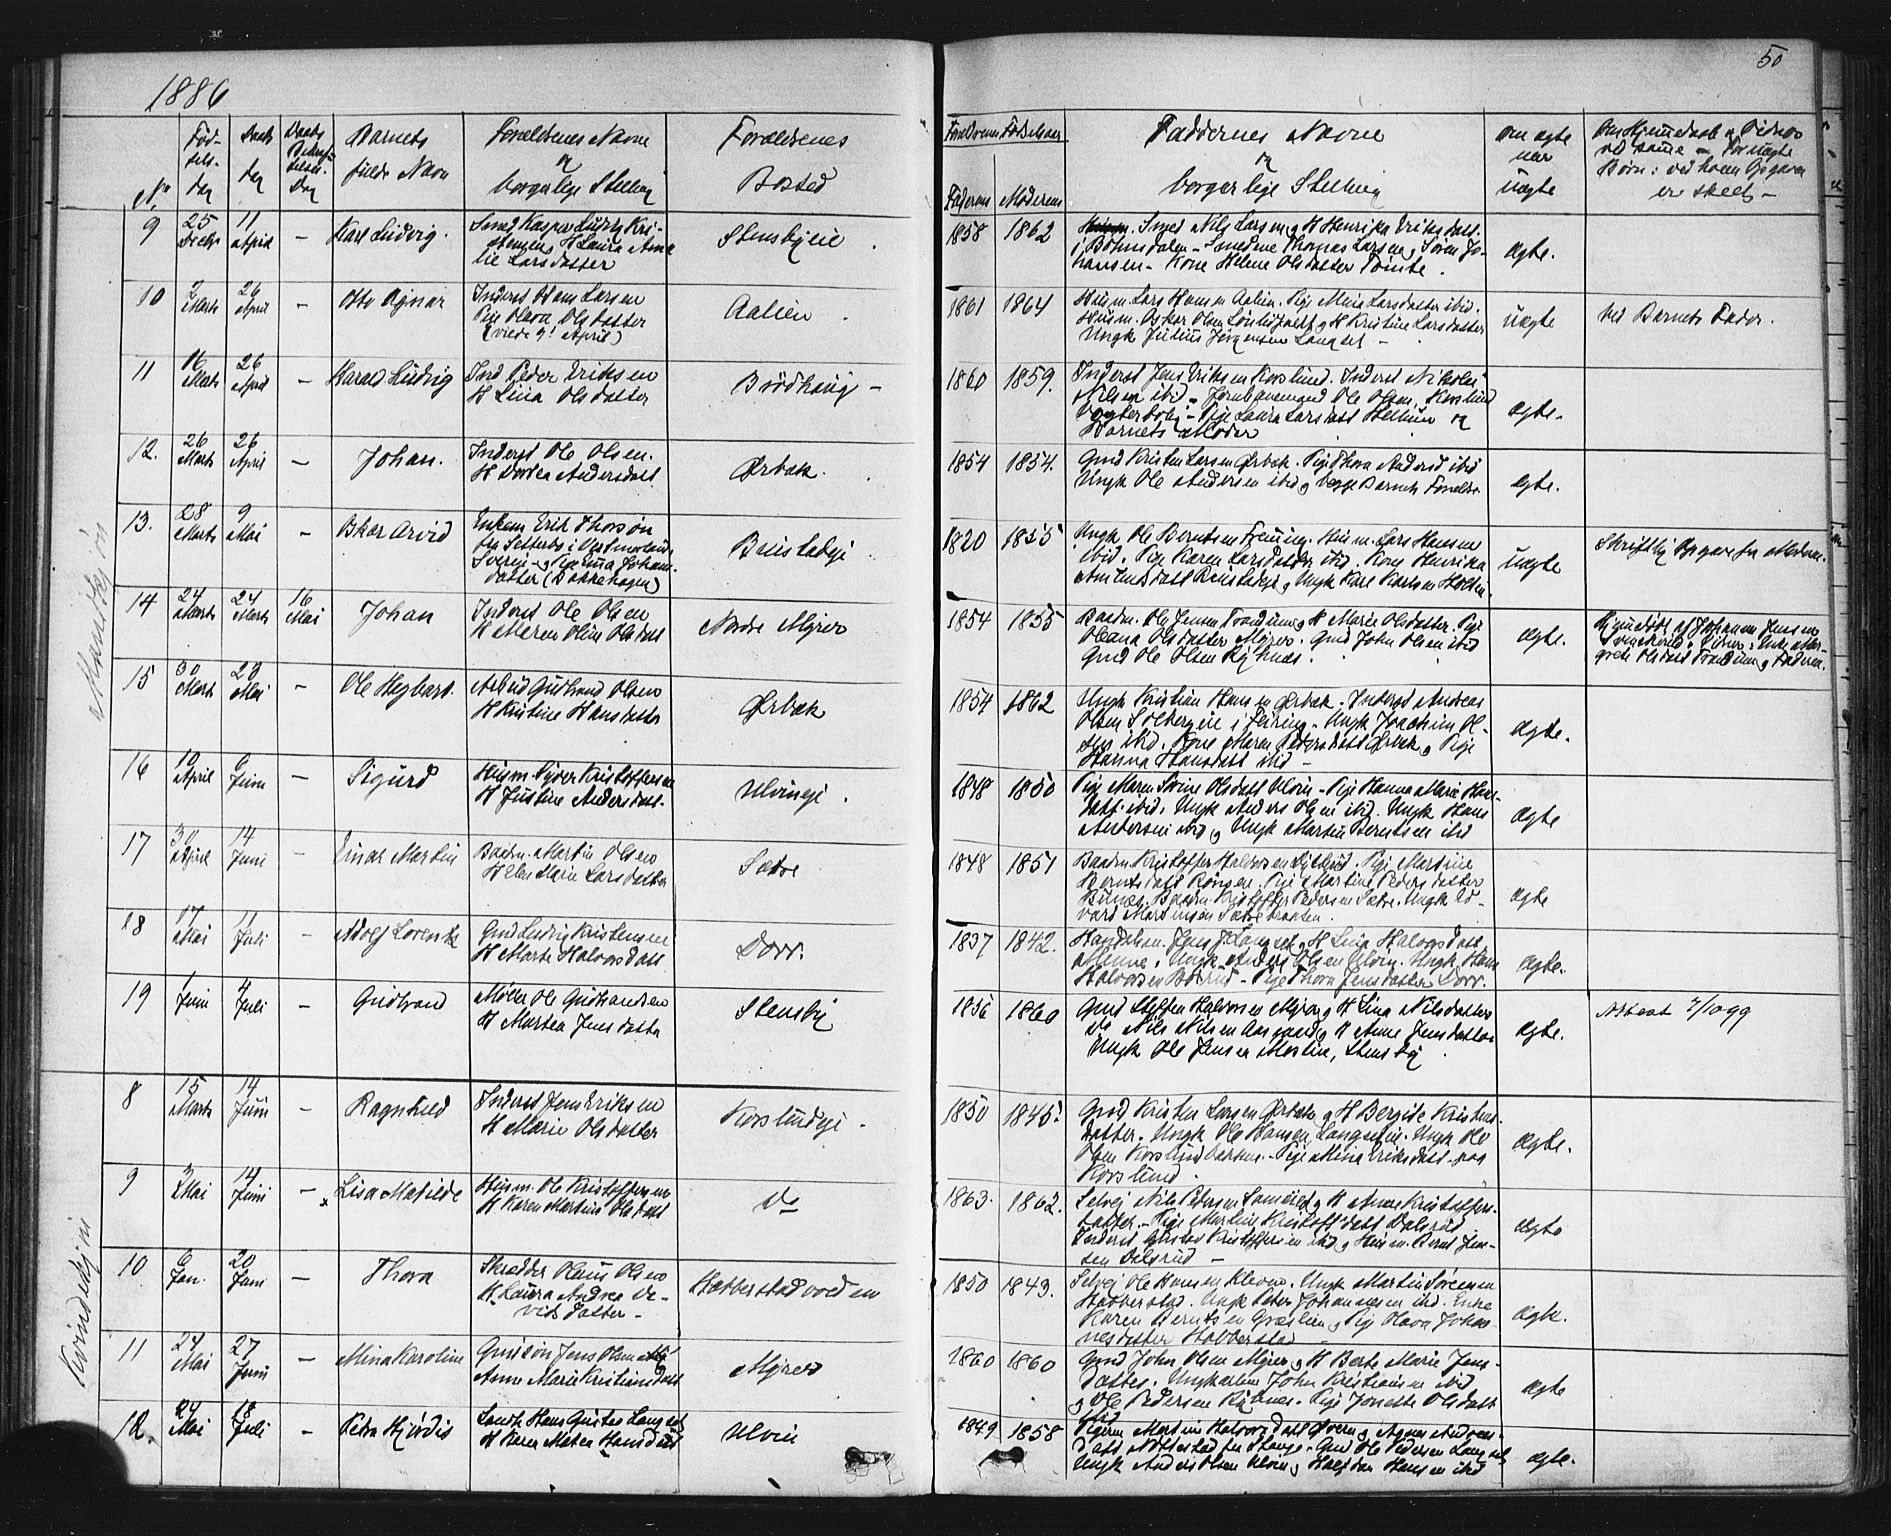 1886
50
N.
Fød-
sels-
dag
Daabs
dag
Daabs
Dag
Barnets
fulde Navn
Forældrenes Navne
og
borgerlige Stilling
Forældrenes
Bosted
Forældrenes Fødselsaar
Faderens Moderens
Faddernes Navne
og
borgerlige Stilling
Om ægte
eller
uægte
Om Hjemmedaab og Vidner
ved samme — For uægte
Børn: ved hvem Opgaven
er skeet —
Mandkjøn
9
25
Decbr
11
April
–
Karl Ludvig.
Smed Kasper Ludvig Kri-
stensen og H Laura Ama
lie Larsdatter
Stensbyeie
1858
1862
Smed Nils Larsen og H Henrika Eriksdatt.
i Bøhnsdalen – Smedene Thomas Larsen og Søren Jo-
hansen – Kone Helene Olsdatter Tømte.
ægte.
10
2
Marts
26
April
–
Otto Agnar
Inderst Hans Larsen
Pige Olava Olsdatter
(viede 9! April)
Aalien
1861
1864
Husm. Lars Hansen Aalien. Pige Mina Larsdatter ibid.
Husm. Oskar Olsen og H Kristine Larsdatter
Ungk Julius Jørgensen Langset –
uægte
Ved Barnets Fader.
11
16
Marts
26
April
–
Harald Ludvig
Ind Peder Eriksen
H Lina Olsdatter
Brødhaug –
1860
1859.
Inderst Jens Eriksen Korslund. Inderst Nikolai
Nilsen ibid – Jernbanemand Ole Olsen, Korslund
Vogterbolig – Pige Laura Larsdatt Hellum og
Barnets Moder
ægte.
12.
26
Marts
26
April
–
Johan.
Inderst Ole Olsen.
H Dortea Andersdatt
Ørbæk.
1854
1854.
Gmd Kristen Larsen Ørbæk. Pige Thora Andersd ibid
Ungk Ole Andersen ibid og begge Barnets Forældre
ægte.
13.
28
Marts
9
Mai
–
Oskar Arvid
Enkem Erik Thorsøn
fra Setterbo i Vestmorland
Sverige – og Pige Emma Johans
datter (Bakkehagen)
Brustadeje
1820
1855
Ungk Ole Berntsen Feiring. Husm. Lars Hansen
ibid. Pige Karen Larsdatter ibid. Kone Henrika
Amundsdatt Brustadeje og Ungk Karl Karlsen
uægte
Skriftlig Opgave fra Moderen.
14
24
Marts
24
Marts
16
Mai
Johan
Inderst Ole Olsen
H Maren Oline Olsdatt
Nordre Myrer
1854
1855
Baadm. Ole Jensen Trandum og H Marie Olsdatter. Pige
Oleana Olsdatter Myrer. Gmd John Olsen ibid
Gmd Ole Olsen Rognæs.
ægte.
Hjemmedøbt af Johannes Jensen
Vidner: Enke Mar-
grete Olsdatt Trandum og Faderen.
15
30
Marts
28
Mai
–
Ole Hegbart.
Arbeid Gudbrand Olsen
H Kristine Hansdatter
Ørbæk
1854
1862
Ungk Kristian Hansen Ørbæk. Inderst Andreas
Olsen Solbergeie i Feiring – Ungk Joachim Ol-
sen ibid. Kone Maren Pedersdatt Ørbæk, og Pige
Hanna Hansdatt ibid –
ægte.
16
10
April
6
Juni
–
Sigurd
Husm. Peder Kristoffersen
H Justine Andersdatt.
Ulvineje
1848
1850
Pige Maren Sine Olsdatt Ulvin – Pige Hanna Marie Hans-
datt. ibid. Ungk Anders Olsen ibid. Ungk Hans
Andersen ibid og Ungk Martin Berntsen ibid
ægte
17
30
April
14
Juni
–
Einar Martin
Baadm. Martin Olsen
Helen Marie Larsdatter
Sætre
1848
1851
Baadm. Kristoffer Halvorsen. Pige Martine
Berntsdatt Rønsen. Pige Martine Pedersdatter
Baadm. Kristoffer Pedersen Sætre. Ungk Ed-
vard Martinsen Sætrebraaten.
ægte
18
17
Mai
11
Juli
–
Adolf Lorents
Gmd Ludvig Kristensen
H Marte Halvorsdatt
Dorr.
1837
1842.
Handelsm. Jens J. Langseth og H Lina Halvorsdatt
Minne. Ungk Anders Olsen Ulvin. Ungk Hans
Halvorsen – Pige Thora Jensdatter Dorr.
ægte.
19
1
Juni
4
Juli
–
Gudbrand
Møller Ole Gudbrandsen
H Martea Jensdatter
Stensby
1856
1860
Gmd Steffen Halvorsen Myrer og H Lina Nilsdatter
Do Nils Nilsen Aasgaard og H Anne Jensdatter
Ungk Ole Jensen Moslie, Stensby.
ægte.
Attest 7/10 99
Kvindekjøn
8
15
Marts
14
Juni
–
Ragnhild
Inderst Jens Eriksen
H Marie Olsdatter
Korslundeje.
1850
1845.
Gmd Kristen Larsen Ørbæk og H Bergite Kristens-
datter. Ungk Ole Hansen Langseteie. Ungk Ole
Olsen Korslundbakken. – Pige Mina Eriksdatt paa
Korslund
ægte.
9
3
Mai
14
Juni
–
Lisa Matilde
Husm. Ole Kristoffersen
H Karen Martine Olsdatt
Do
1863.
1862.
Selvej Nils Petersen og H Anne Kristoffers-
datter. – Pige Martine Kristoffdatt Dalsrud
Inderst Gustav Kristoffersen ibid og Husm. Bernt Jen-
sen Dalsrud –
ægte
10
6
Jan.
20
Juni
–
Thora
Skrædder Olaus Olsen
H. Laura Andrea Da-
vidsdatter –
Habberstadvolden
1850
1843.
Selvej Ole Hansen Kleven. Ungk Martin Sørensen
Habberstad. Ungk Peter Johannesen ibid. Enke
Karen Berntsen og Pige Olava Johan-
nesdatter Habberstad –
ægte.
11
24
Mai
27
Juni
–
Mina Karoline
Gmdsøn Jens Olsen og
Anne Marie Kristiansdatt
Myrer
1860
1860
Gmd John Olsen Myrer og H Berte Marie Jens-
datter. Ungkarlen John Kristiansen ibid
og Ole Pedersen Rognæs. Pige Jonette Olsdatt
ibid
ægte
12.
24
Mai
18
Juli
–
Petra Hjørdis
Landh Hans Gustav Langset
H Karen Matea Hansdatt
Ulvin
1849
1858
Pigerne Martine Halvorsdatt Dværn og Agnes Andreas-
datt Nøttestad fra Stange – Gmd Ole Pedersen Langset
Ungk Anders Olsen Ulvin og Halfdan Hansen ibid
ægte.